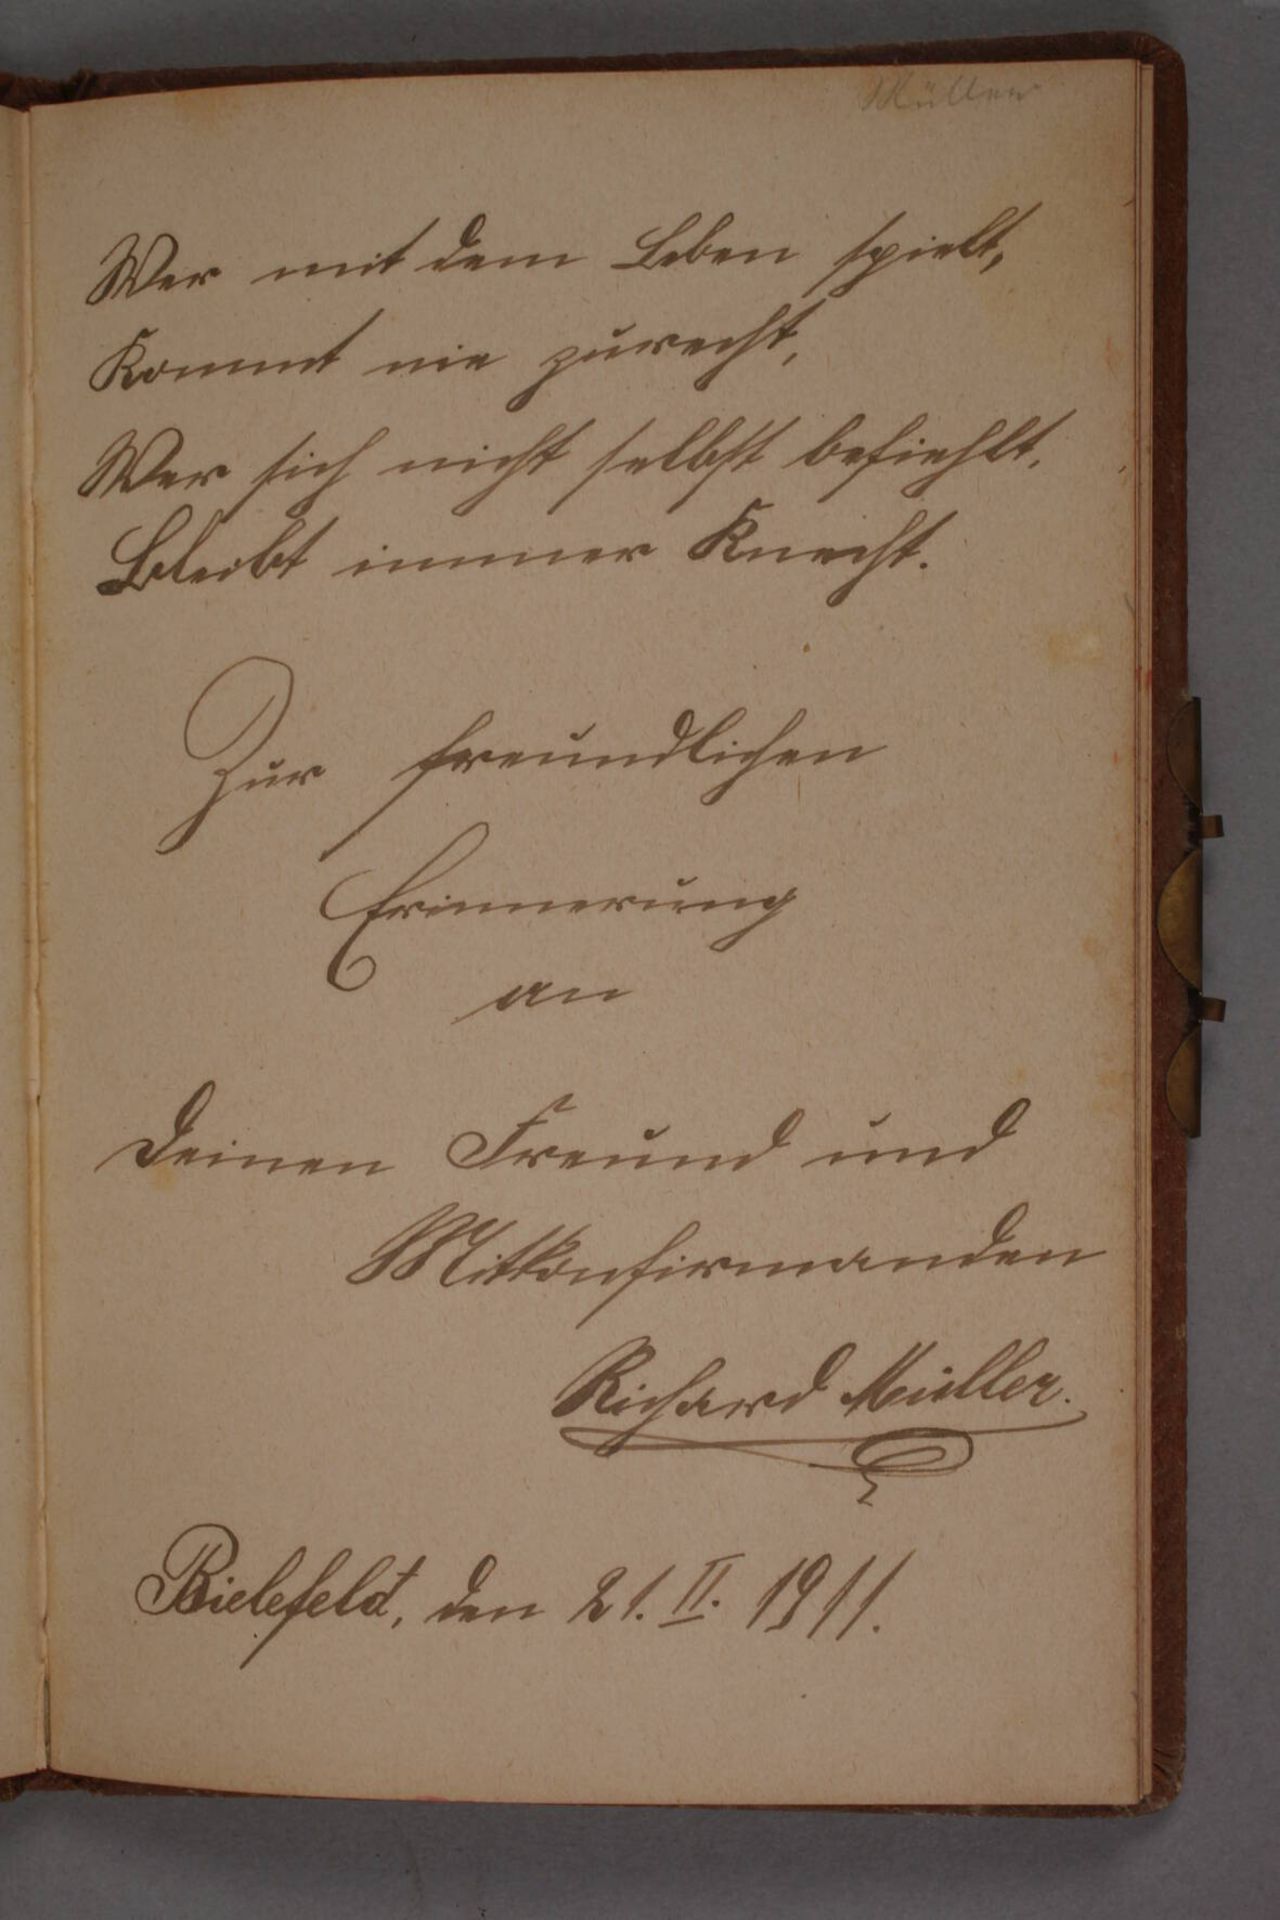 Müller
Wer mit dem Leben spielt,
Kommt nie zurecht,
Wer sich nicht selbst befiehlt.
Bleibt immer Knecht.
Zur freundlichen
Erinnerung
an
Deinen Freund und
Mitkonfirmanden
Richard Müller.
Bielefeld, den 21. II. 1911.